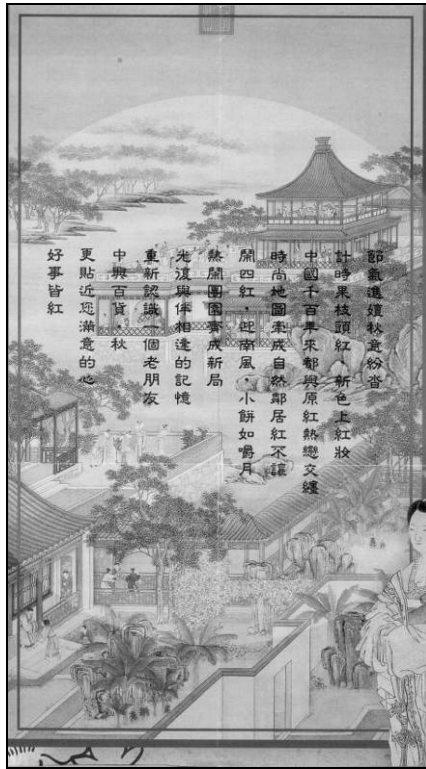 節氣遞嬗秋意紛沓
計時果枝頭紅、新色上紅妝
中國千百年來都與原紅熱戀交纏
時尚地圖牽成自然鄰居紅不讓
鬧四紅，迎南風，小餅如嚼月
熱鬧團圓齊成新局
光復與伴相逢的記憶
重新認識一個老朋友
中興百貨，秋
更貼近您滿意的心
好事皆紅